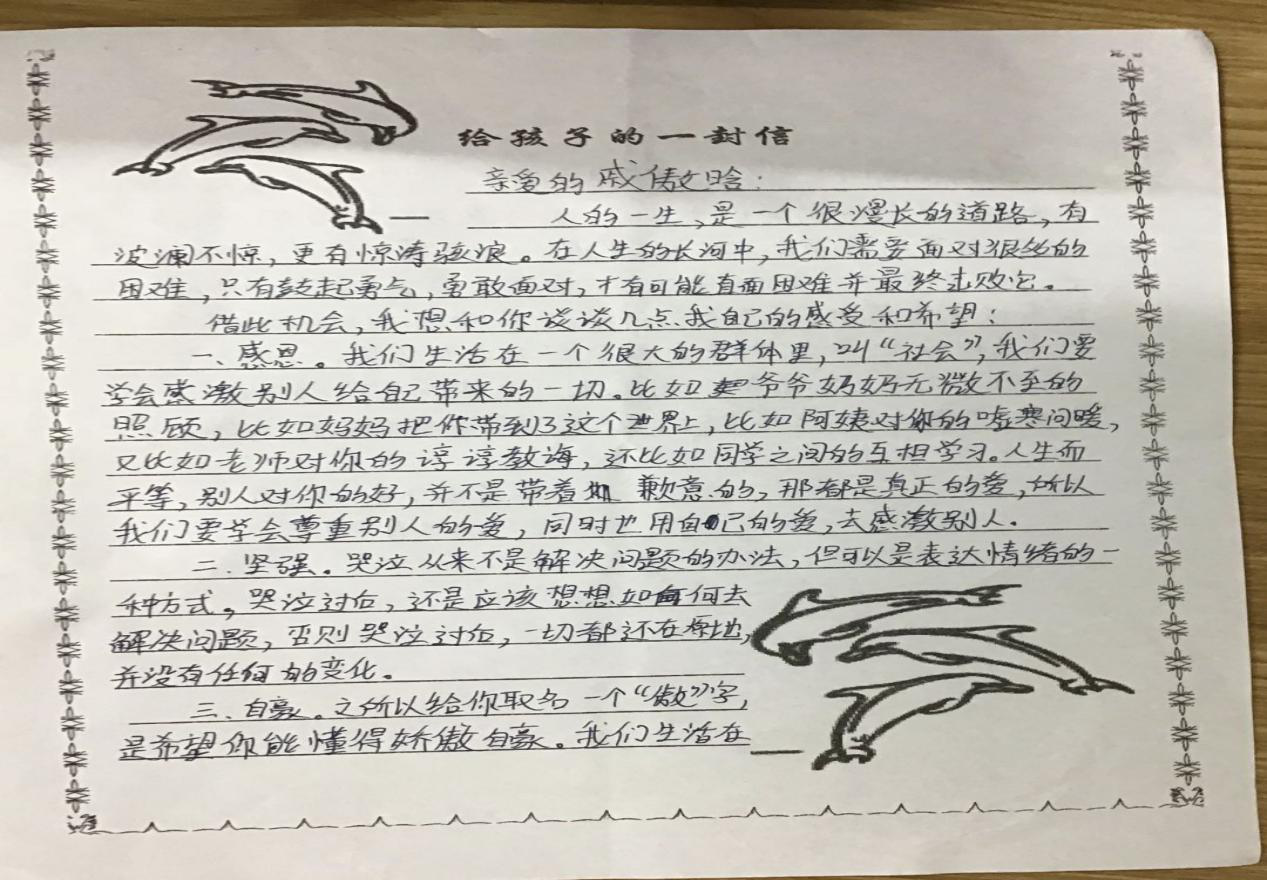 给孩子的一封信
亲爱的戚傲晗：
人的一生，是一个很漫长的道路，有
波澜不惊，更有惊涛骇浪。在人生的长河中，我们需要面对很多的
困难，只有鼓起勇气，勇敢面对，才有可能直面困难并最终击败它。
借此机会，我想和你谈谈几点我自己的感受和希望：
一、感恩。我们生活在一个很大的群体里，叫“社会”，我们要
学会感激别人给自己带来的一切。比如爷爷奶奶无微不至的
照顾，比如妈妈把你带到了这个世界上，比如阿姨对你的嘘寒问暖，
又比如老师对你的谆谆教诲，还比如同学之间的互相学习。人生而
平等，别人对你的好，并不是带着歉意的，那都是真正的爱，所以
我们要学会尊重别人的爱，同时也用自己的爱，去感激别人。
二、坚强。哭泣从来不是解决问题的办法，但可以是表达情绪的一
种方式。哭泣过后，还是应该想想如何去
解决问题，否则哭泣过后，一切都还在原地，
并没有任何的变化。
三、自豪。之所以给你取名一个“傲”字，
是希望你能懂得骄傲自豪。我们生活在